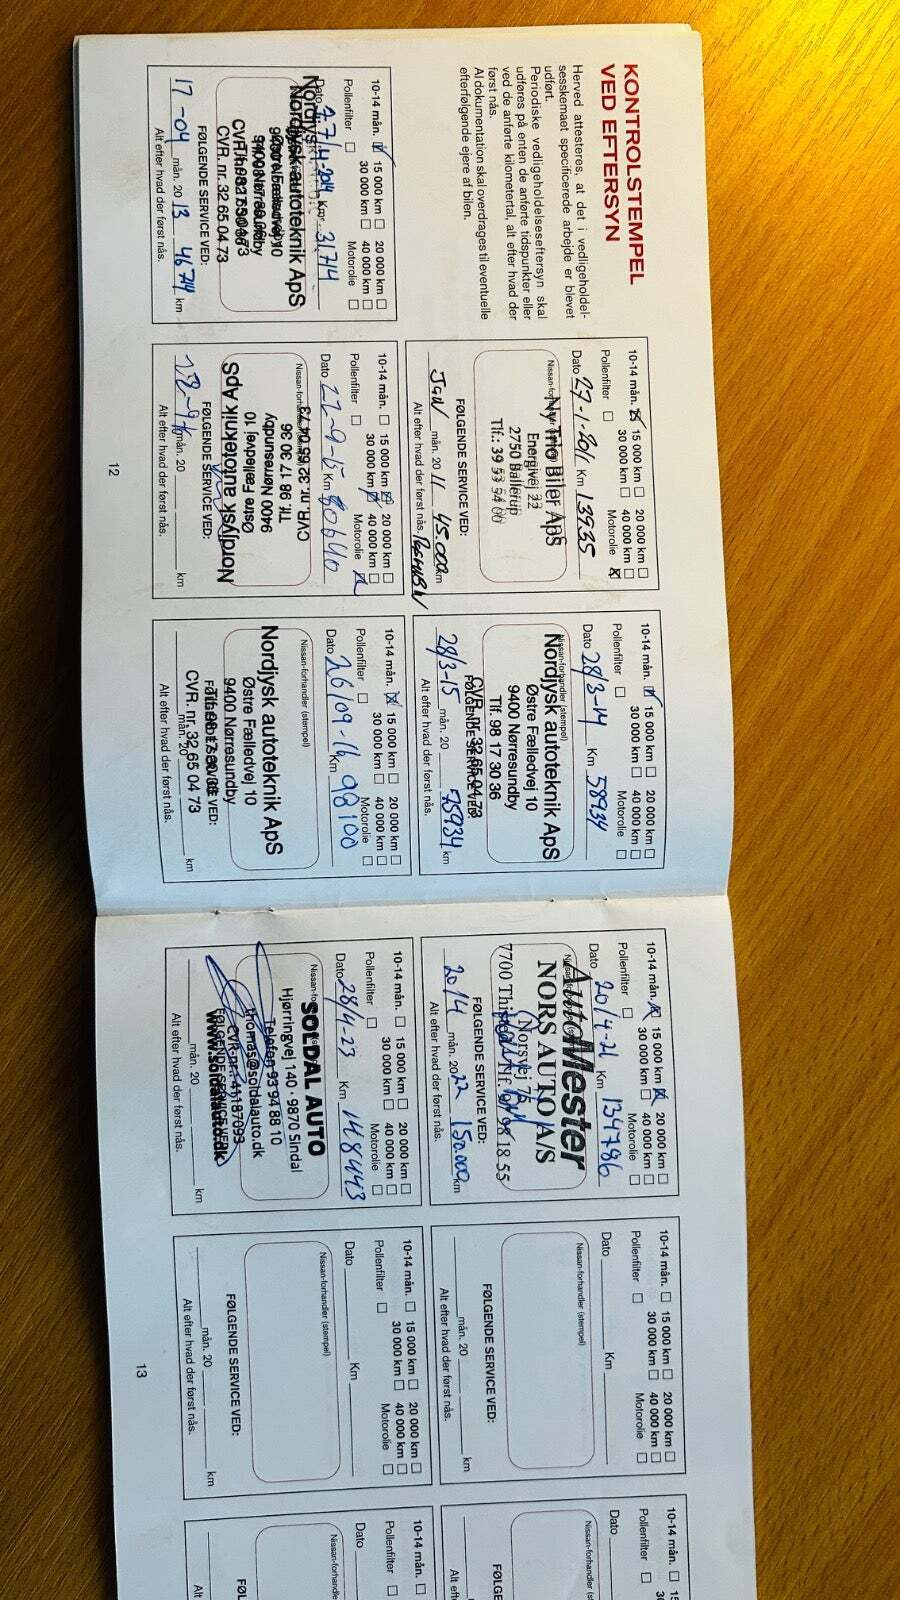 KONTROLSTEMPEL
VED EFTERSYN
Herved attesteres, at det i vedligeholdel-
sesskemaet specificerede arbejde er blevet
udført.
Periodiske vedligeholdelseseftersyn skal
udføres på enten de anførte tidspunkter eller
ved de anførte kilometertal, alt efter hvad der
først nås.
Al dokumentation skal overdrages til eventuelle
efterfølgende ejere af bilen.
10-14 mån. 15 000 km 20 000 km
30 000 km 40 000 km
Pollenfilter Motorolie
Dato Km 31714
Nordjysk autoteknik ApS
CVR. nr. 32 65 04 73
FØLGENDE SERVICE VED:
17-04 mån. 20 13 46714 km
Alt efter hvad der først nås.
10-14 mån. 15 000 km 20 000 km
30 000 km 40 000 km
Pollenfilter Motorolie
Dato 27-1-2011 Km 13935
Ny Trio Biler ApS
Energivej 22
2750 Ballerup
Tlf.: 39 53 54 00
FØLGENDE SERVICE VED:
mån. 20 11 45.000 km
Alt efter hvad der først nås.
10-14 mån. 15 000 km 20 000 km
30 000 km 40 000 km
Pollenfilter Motorolie
Dato 22-9-15 Km 80640
Nissan-for
CVR. nr. 32 65 04 73
Tlf. 98 17 30 36
9400 Nørresundby
Østre Fælledvej 10
Nordjysk autoteknik ApS
FØLGENDE SERVICE VED:
mån. 20 km
Alt efter hvad der først nås.
10-14 mån. 15 000 km 20 000 km
30 000 km 40 000 km
Pollenfilter Motorolie
Dato 28/3-14 Km 58934
Nissan-forhandler (stempel)
Nordjysk autoteknik ApS
Østre Fælledvej 10
9400 Nørresundby
Tlf. 98 17 30 36
CVR. nr. 32 65 04 73
FØLGENDE SERVICE VED:
28/3-15 mån. 20 75934 km
Alt efter hvad der først nås.
10-14 mån. 15 000 km 20 000 km
30 000 km 40 000 km
Pollenfilter Motorolie
Dato 26/09-16 Km 98100
Nissan-forhandler (stempel)
Nordjysk autoteknik ApS
Østre Fælledvej 10
9400 Nørresundby
CVR. nr. 32 65 04 73
mån. 20 km
Alt efter hvad der først nås.
12
10-14 mån. 15 000 km 20 000 km
30 000 km 40 000 km
Pollenfilter Motorolie
Dato 20/4-21 Km 134786
AutoMester
NORS AUTO A/S
Norsvej 7
7700 18 55
FØLGENDE SERVICE VED:
20/4 mån. 20 22 150.000 km
Alt efter hvad der først nås.
10-14 mån. 15 000 km 20 000 km
30 000 km 40 000 km
Pollenfilter Motorolie
Dato 28/4-23 Km 148443
SOLDAL AUTO
Hjørringvej 140 · 9870 Sindal
Telefon 93 94 88 10
thomas@soldalauto.dk
CVR-nr.: 41187093
www.soldalauto.dk
mån. 20 km
Alt efter hvad der først nås.
10-14 mån. 15 000 km 20 000 km
30 000 km 40 000 km
Pollenfilter Motorolie
Dato Km
Nissan-forhandler (stempel)
FØLGENDE SERVICE VED:
mån. 20 km
Alt efter hvad der først nås.
10-14 mån. 15 000 km 20 000 km
30 000 km 40 000 km
Pollenfilter Motorolie
Dato Km
Nissan-forhandler (stempel)
FØLGENDE SERVICE VED:
mån. 20 km
Alt efter hvad der først nås.
10-14 mån.
Pollenfilter
Dato
Nissan-forhandler (stempel)
10-14 mån.
Pollenfilter
Dato
Nissan-forhandler
13